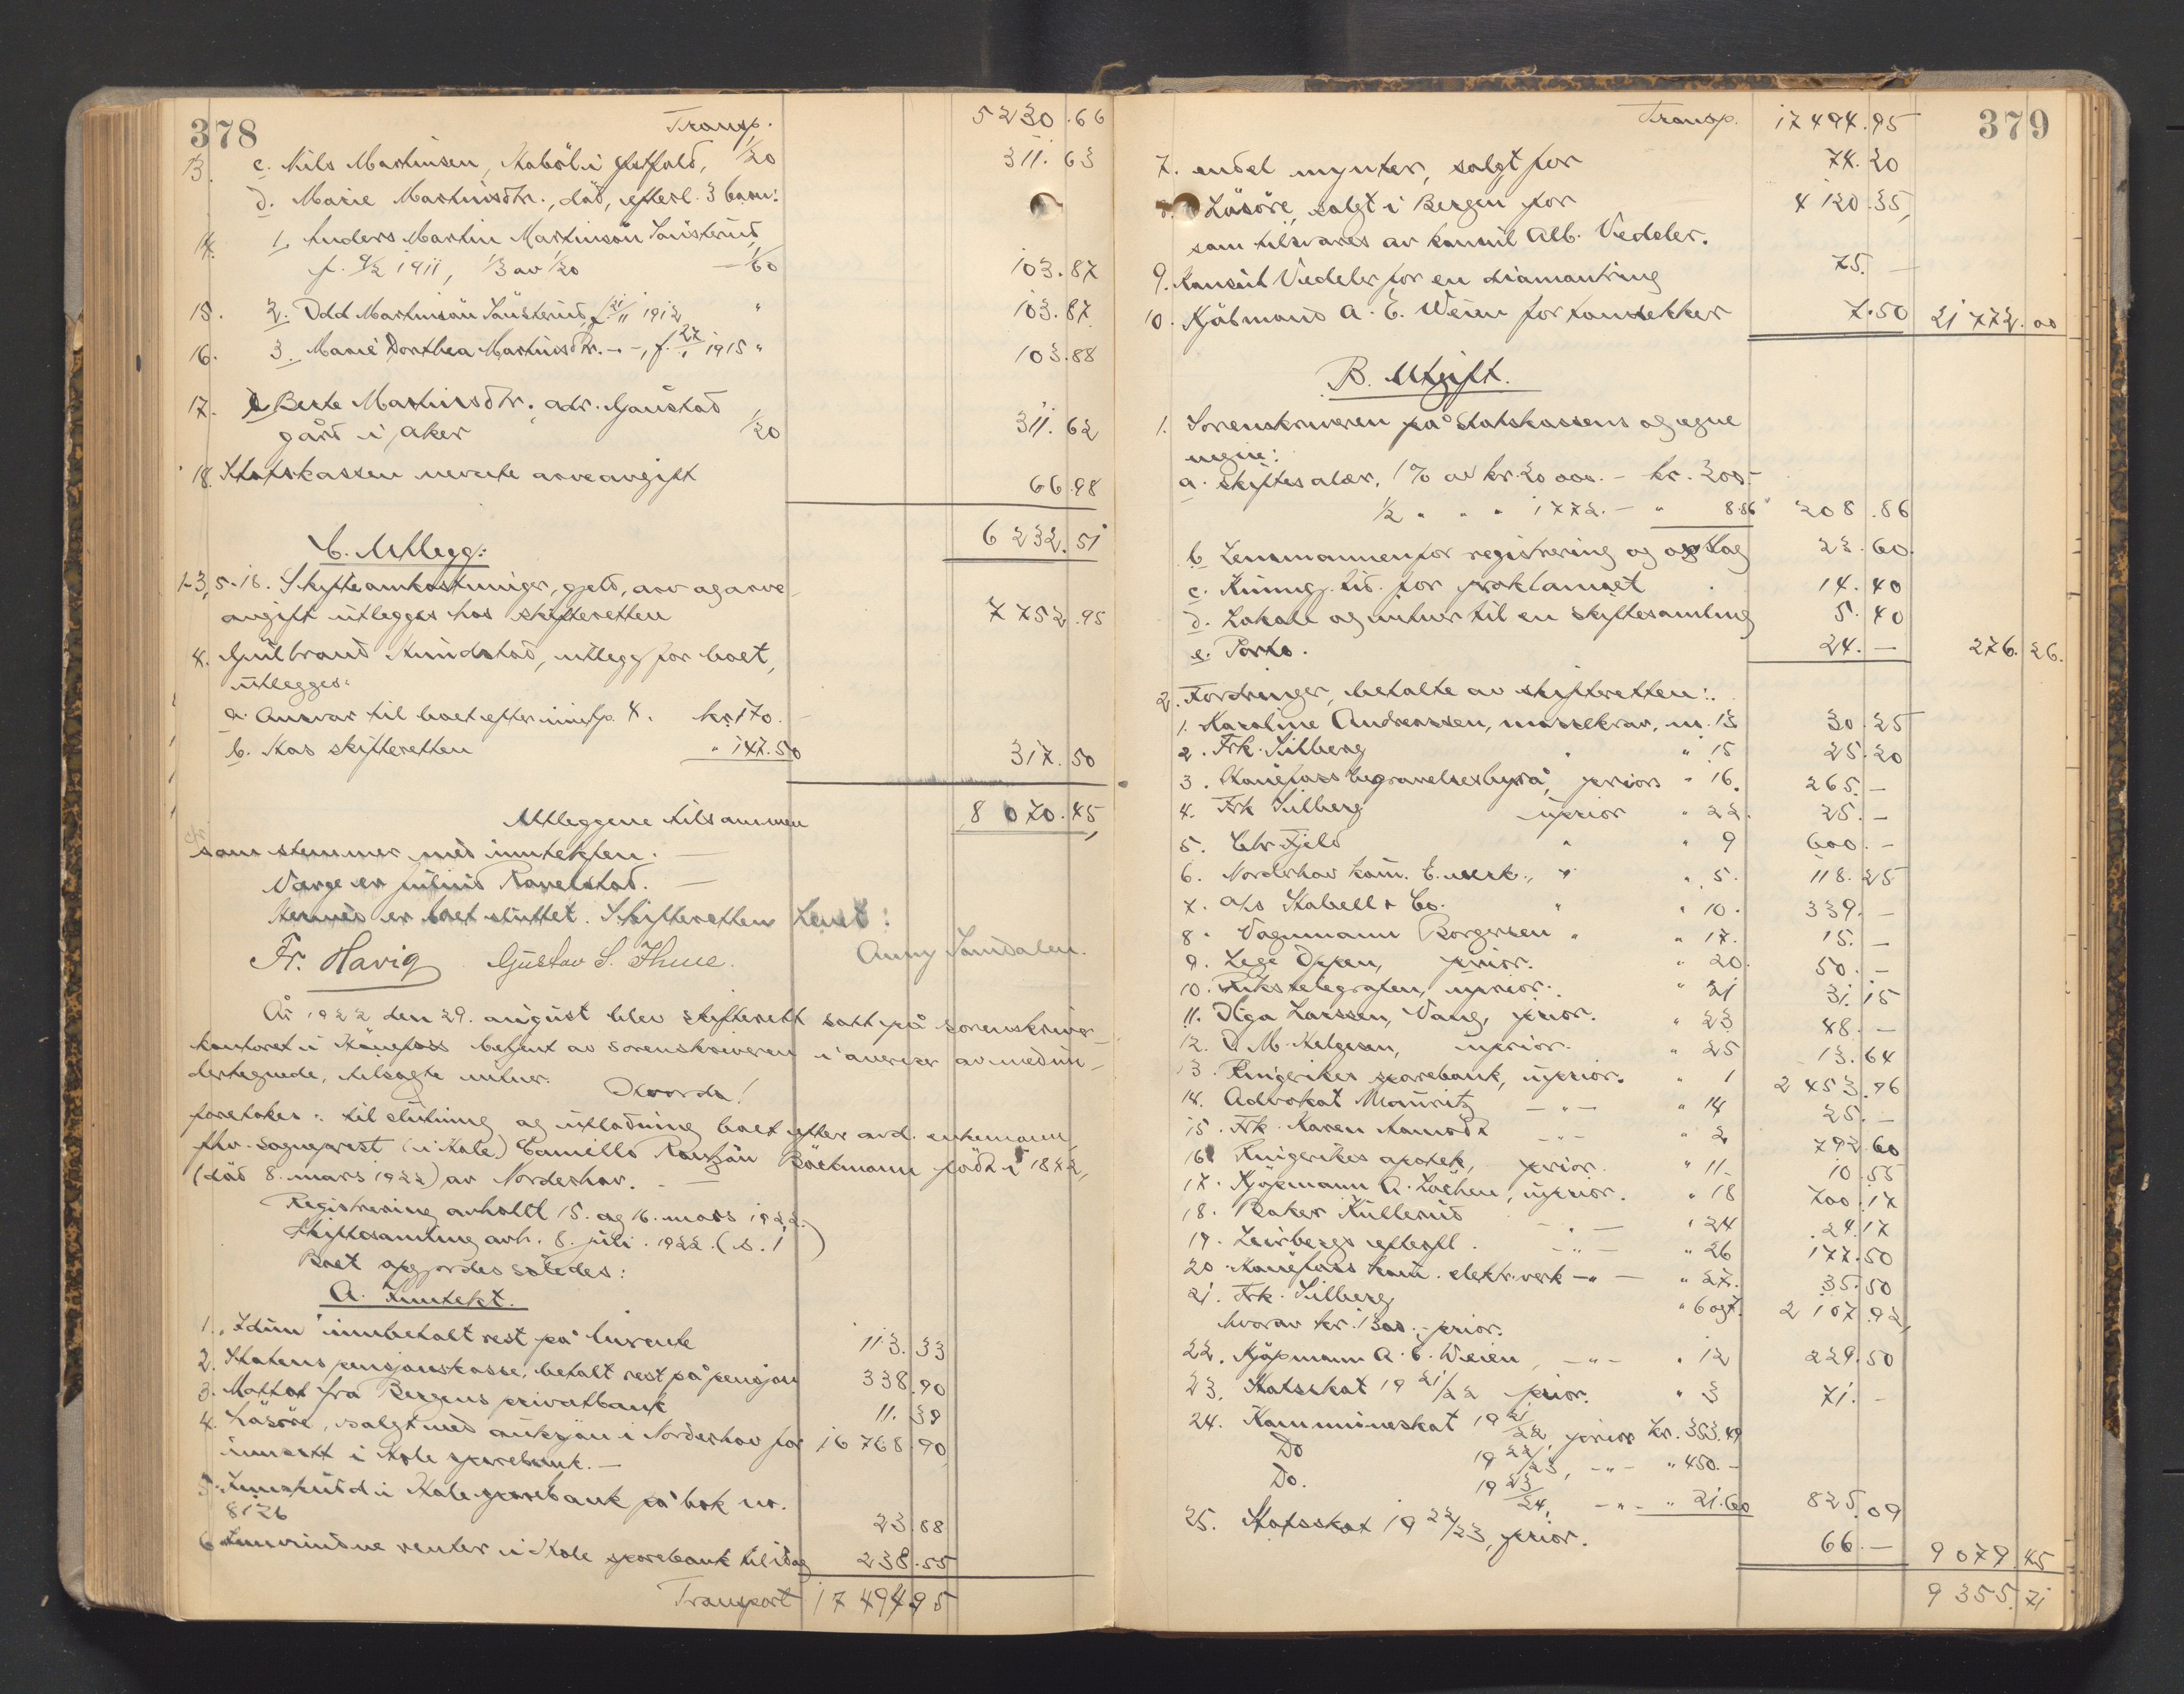 378
Transp. 5230.66
13. c. Nils Martinsen, Kaböl i Østfold, 1/20 311.63
d. Marie Martinsdtr., död, efterl. 3 barn:
14. 1, Anders Martin Martinsön
f. 9/2 1911, 1/3 av 1/20 — 1/60 103.87
15. 2. Odd Martinsön f. 21/11 1912 " 103.87
16. 3. Marie Dorthea Martinsdtr. -"-, f. 27/1 1915 " 103.88
17. e Berte Martinsdtr. adr. Gaustad
gård i Aker 1/20 311.62
18. Statskassen nevnte arveavgift 66.98
6232.51
C. Utlegg:
1-3, 5-18. Skifteomkostninger, gjeld, arv og arve-
avgift utlegges hos skifteretten 7752.95
4. Gulbrand Kindstad, utlegg for boet,
utlegges:
a. Ansvar til boet efter inntp. 4. kr. 170.-
b. Hos skifteretten " 147.50 317.50
Utleggene tilsammen 8070.45,
som stemmer med inntekten. —
Værge er Julius Ravelstad. —
Hermed er boet sluttet. Skifteretten hevet:
Fr. Havig Gustav S. Thue. Anny Sandalen.
År 1922 den 29. august blev skifterett satt på sorenskriver-
kontoret i Hönefoss betjent av sorenskriveren i overvær av medun-
dertegnede, tilsagte vitner.
Hvorda!
foretokes: til slutning og utlodning boet efter avd. enkemann
fhv. sogneprest (i Hole) Camillo Böckmann född i 1842,
(död 8. mars 1922) av Norderhov. —
Registrering avholdt 15. og 16. mars 1922.
Skiftesamling avh. 8. juli 1922. (s. 1 )
Boet opgjordes således:
A. Inntekt.
1. "Idun" innbetalt rest på livrente 113.33
2. Statens pensjonskasse, betalt rest på pensjon 338.90
3. Mottat fra Bergens privatbank 11.39
4. Lösöre, solgt ved auksjon i Norderhov for 16768.90
innsatt i Hole sparebank. —
5. Innskudd i Hole sparebank på bok nr.
8126 23.88
6. Innvundne renter i Hole sparebank til idag 238.55
Transport 17494.95
379
Transp. 17494.95
7. endel mynter, solgt for 74.20
8. Lösöre, solgt i Bergen for 4120.35,
som tilsvares av konsul Alb. Viedeler.
9. Konsul Viedeler for en diamantring 75.—
10. Kjöbmand A. E. Weien for tomsekker 7.50 21772.00
B. Utgift.
1. Sorenskriveren på Statskassens og egne
vegne:
a. skiftesalær, 1% av kr. 20000.- kr. 200.-
1/2 " " " 1772.- " 8.86 208.86
b. Lensmannen for registrering og opslag 23.60.
c. Kunngj. tid. for proklamaet 14.40
d. Lokale og vitner til en skiftesamling 5.40
e. Porto. 24.— 276.26.
2. Fordringer, betalte av skifteretten:
1. Karoline Andreassen, massekrav, nr. 13 30.25
2. Frk. Silberg " " 15 25.20
3. Hönefoss begravelsesbyrå, prior " 16. 265.—
4. Frk Silberg uprior " 22. 25.—
5. Chr. Fjeld " " 9 600.—
6. Norderhov kom. E.verk., " " 5. 118.25
7. A/s Kabell & Co. " " 10. 339.—
8. Vognmann Borgersen " " 17. 15.—
9. Lege Oppen, prior. " 20. 50.—
10. Rikstelegrafen, uprior. " 21 31.15
11. Olga Larssen, Vang, prior. " 23 48.—
12. O. M. Helgesen, uprior. " 25 13.64
13. Ringerikes sparebank, uprior. " 1 2453.96
14. Advokat Mauritz —"— " 14 25.—
15. Frk. Karen —"— " 2 792.60
16. Ringerikes apotek, prior. " 11. 10.55
17. Kjöpmann A. Löchen, uprior. " 18 700.17
18. Baker Kullerud —"— " 24 24.17
19. Leirbergs efterfl. —"— " 26 177.50
20. Hönefoss kom. elektr.verk —"— " 27. 35.50
21. Frk. Silberg " 6 og 7. 2107.92,
hvorav kr. 1300.- prior.
22. Kjöpmann A. E. Weien, —"— " 12 229.50
23. Statsskat 1921/22 prior. " 3 71.—
24. Kommuneskat 1921/22, prior kr. 353.49
Do 1922/23, —"— " 450.—
Do. 1923/24, —"— " 21.60 825.09
25. Statsskat 1922/23, prior. 66.— 9079.45
9355.71